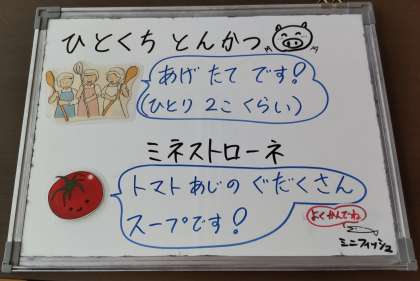 ひとくち とんかつ
あげ たて です!
(ひとり 2こ くらい)
ミネストローネ
トマト あじの ぐだくさん
スープです!
よくかんでね
ミニフィッシュ